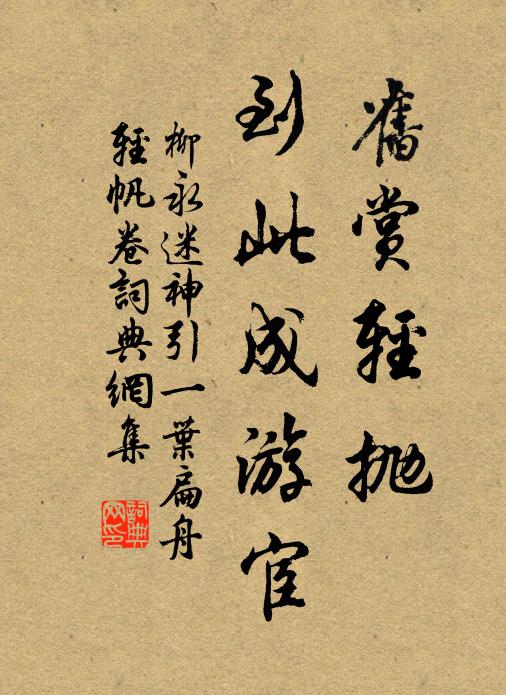 舊賞輕拋
到此成游宦
柳永迷神引一葉扁舟
輕帆卷詞典網集
詞典網印